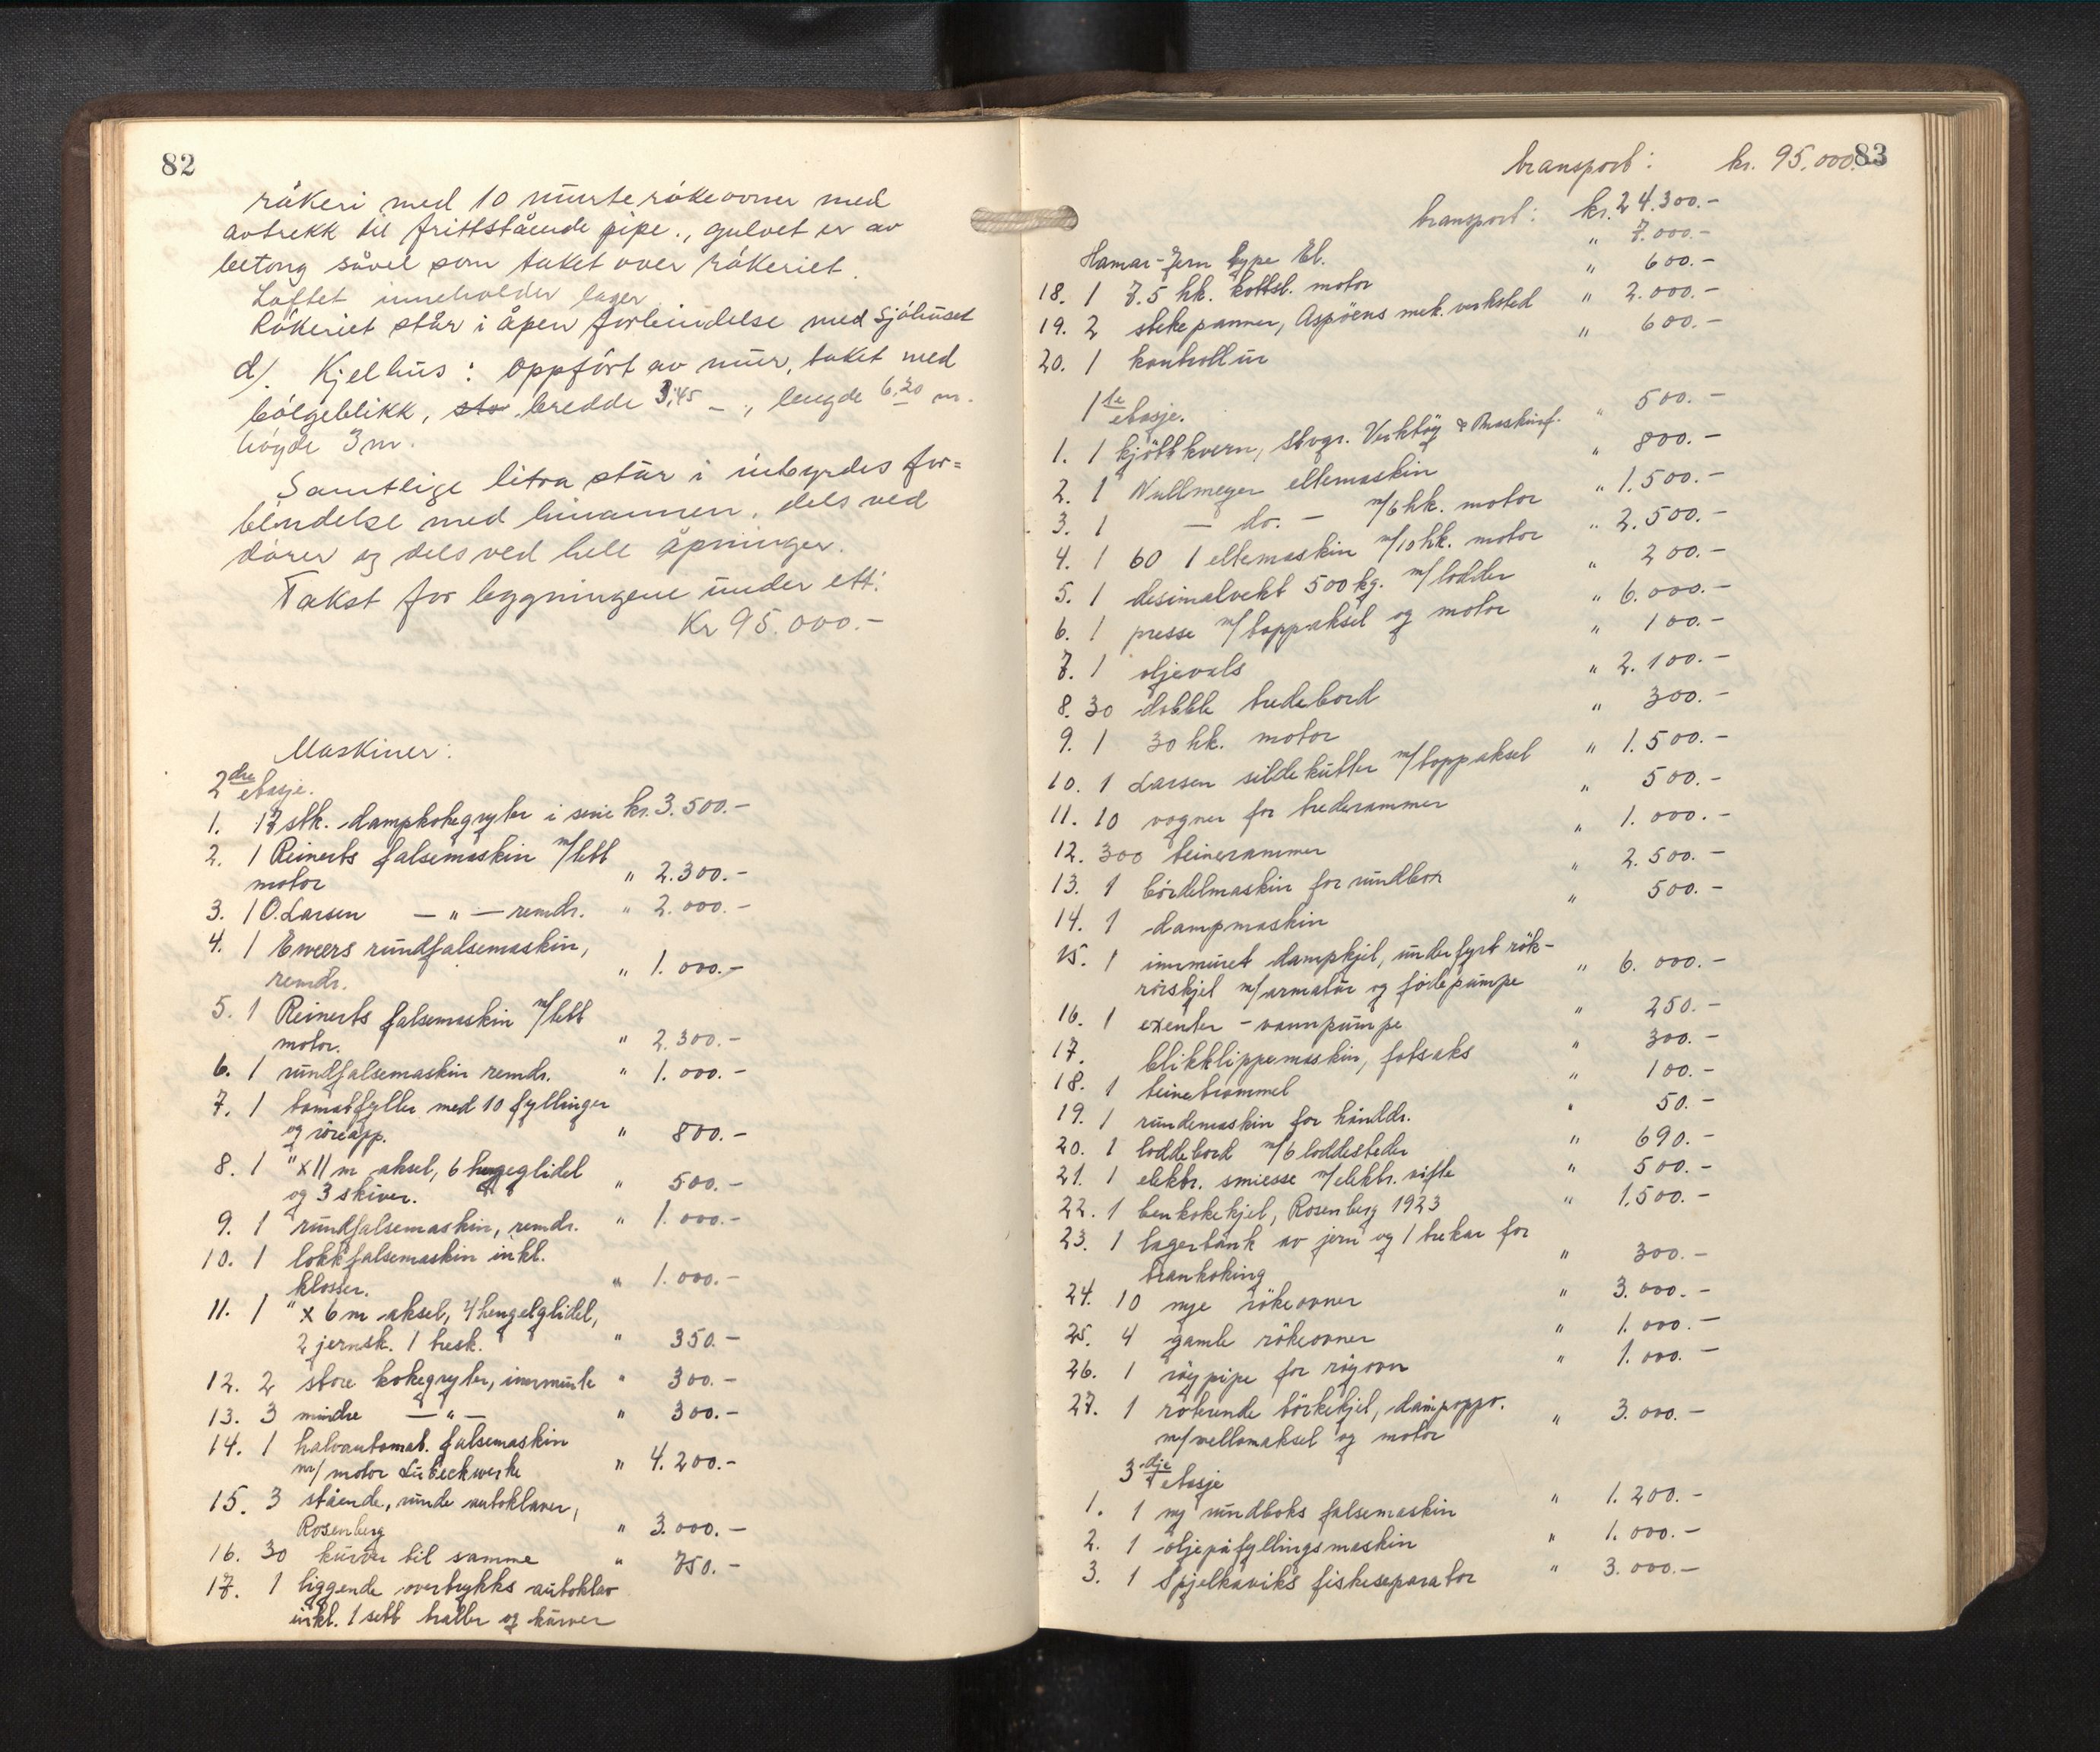 82
rökeri med 10 murte rökeovner med
avtrekk til frittstående pipe., gulvet er av
betong såvel som taket over rökeriet.
Loftet inneholder lager.
Rökeriet står i åpen forbindelse med Sjöhuset
d). Kjelhus: Oppfört av mur, taket med
bölgeblikk, bredde 3,45 -, lengde 6,20 m.
höyde 3 m.
Samtlige litra står i inbyrdes for=
bindelse med hinannen, dels ved
dörer og dels ved hele åpninger.
Takst for bygningene under ett:
Kr 95.000.-
Maskiner:
2dre etasje.
1. 17 stk. dampkokegryter i serie kr. 3.500.-
2. 1 Reinerts falsemaskin m/tett
motor " 2.300.-
3. 1 O. Larsen - " - remdr. " 2.000.-
4. 1 Eweers rundfalsemaskin,
remdr. " 1.000.-
5. 1 Reinerts falsemaskin m/tett
motor. " 2.300.-
6. 1 rundfalsemaskin remdr. " 1.000.-
7. 1 tomatfyller med 10 fyllinger
og röreapp. " 800.-
8. 1 " x 11 m aksel, 6 hengeglidel
og 3 skiver. " 500.-
9. 1 rundfalsemaskin, remdr. " 1.000.-
10. 1 lokkfalsemaskin inkl.
klosser. " 1.000.-
11. 1 " x 6 m aksel, 4 hengelglidel,
2 jernsk. 1 tresk. " 350.-
12. 2 store kokegryter, innmurte " 300.-
13. 3 mindre - " - " 300.-
14. 1 halvautomat. falsemaskin
m/ motor Lübeckwerke " 4.200.-
15. 3 stående, runde autoklaver,
Rosenberg " 3.000.-
16. 30 kurver til samme " 750.-
17. 1 liggende overtrykks autoklav
inkl. 1 sett traller og kurver
83
transport: kr. 95.000.
transport: kr. 24.300.-
Hamar-Jern type El. " 7.000.-
18. 1 7.5 hk. kottsl. motor " 600.-
19. 2 stekepanner, Aspöens mek. verksted " 2.000.-
20. 1 kontrollur " 600.-
1ste etasje.
1. 1 kjöttkvern, Stvgr. Verktöy & Maskinf. " 500.-
2. 1 Nullmeyer eltemaskin " 800.-
3. 1 - do. - m/6 hk. motor " 1.500.-
4. 1 60 l eltemaskin m/10 hk. motor " 2.500.-
5. 1 desimalvekt 500 kg. m/lodder " 200.-
6. 1 presse m/toppaksel og motor " 6.000.-
7. 1 oljevals " 100.-
8. 30 dobble tredebord " 2.100.-
9. 1 30 hk. motor " 300.-
10. 1 Larsen sildekutter m/toppaksel " 1.500.-
11. 10 vogner for trederammer " 500.-
12. 300 teinerammer " 1.000.-
13. 1 bördelmaskin for rundbox " 2.500.-
14. 1 dampmaskin " 500.-
15. 1 innmuret dampkjel, underfyrt rök-
rörskjel m/armatur og födepumpe " 6.000.-
16. 1 exenter - vannpumpe " 250.-
17. blikklippemaskin, fotsaks " 300.-
18. 1 teinetrommel " 100.-
19. 1 rundemaskin for hånddr. " 50.-
20. 1 loddebord m/6 loddesteder " 690.-
21. 1 elektr. smiesse m/elektr. vifte " 500.-
22. 1 benkokekjel, Rosenberg 1923 " 1.500.-
23. 1 lagertank av jern og 1 trekar for
trankoking " 300.-
24. 10 nye rökeovner " 3.000.-
25. 4 gamle rökeovner " 1.000.-
26. 1 röypipe for röyovn " 1.000.-
27. 1 roterende törkekjel, dampoppv.
m/mellomaksel og motor " 3.000.-
3dje etasje
1. 1 ny rundboks falsemaskin " 1.200.-
2. 1 oljepåfyllingsmaskin " 1.000.-
3. 1 Spjelkaviks fiskeseparator " 3.000.-